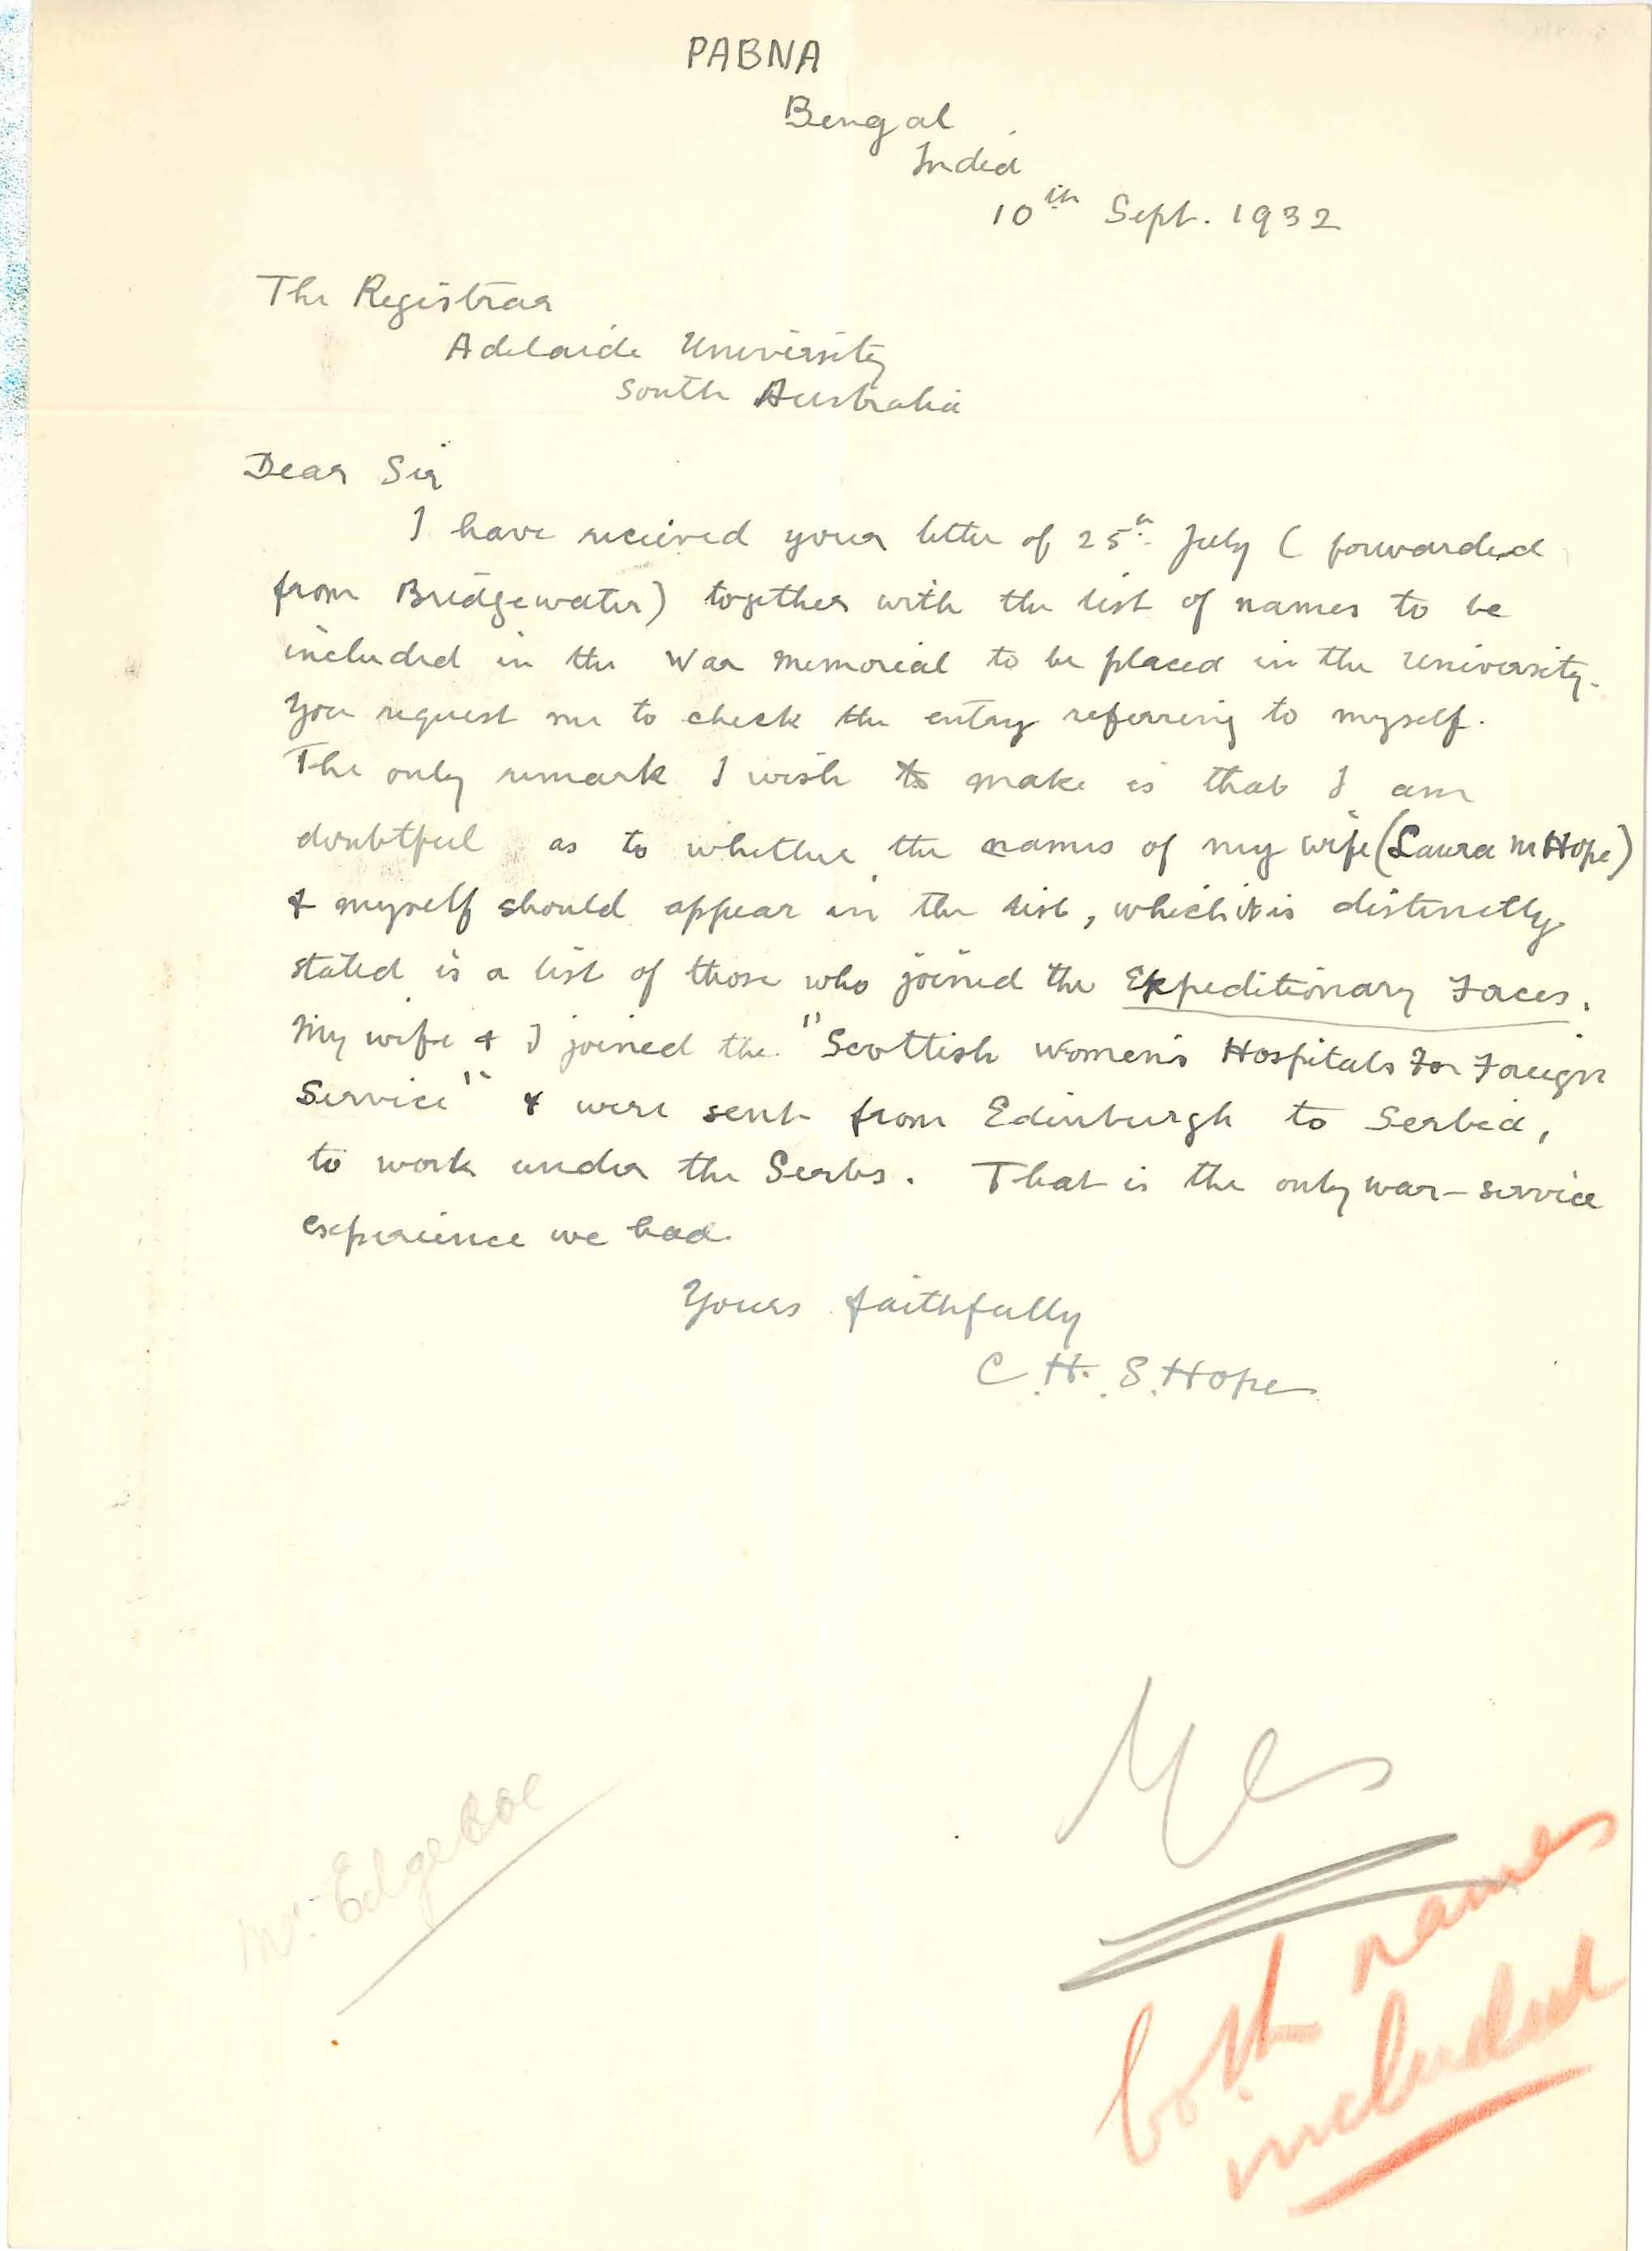 PABNA
Bengal
India
10th Sept. 1932
The Registrar
Adelaide University
South Australia
Dear Sir
I have received your letter of 25th July (forwarded
from Bridgewater) together with the list of names to be
included in the War Memorial to be placed in the University.
You request me to check the entry referring to myself.
The only remark I wish to make is that I am
doubtful as to whether the names of my wife (Laura M Hope)
& myself should appear in the list, which it is distinctly
stated is a list of those who joined the Expeditionary Forces.
My wife & I joined the "Scottish Women's Hospitals For Foreign
Service" & were sent from Edinburgh to Serbia,
to work under the Serbs. That is the only war-service
experience we had.
Yours faithfully
C.H.S. Hope
Yes
Mr. Edgeloe
both names
included